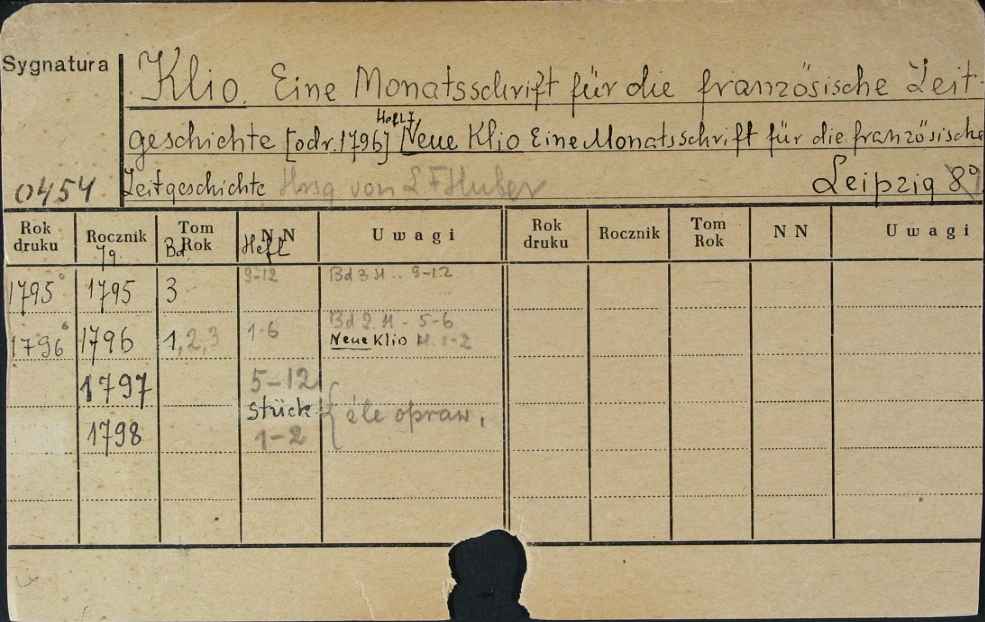 Sygnatura
Klio. Eine Monatsschrift für die französische Zeit-
Heft 7
geschichte [odr. 1796] Neue Klio Eine Monatsschrift für die französische
0454 Zeitgeschichte Hrsg von L F Huber Leipzig 8°
Rok druku Rocznik Tom Rok N N Uwagi Rok druku Rocznik Tom Rok N N Uwagi
Jg Bd Heft
1795 1795 3 9-12 Bd 3 H. 9-12
Bd 2 H. 5-6
1796 1796 1,2,3 1-6 Neue Klio H. 1-2
1797 5-12
Stück źle opraw.
1798 1-2